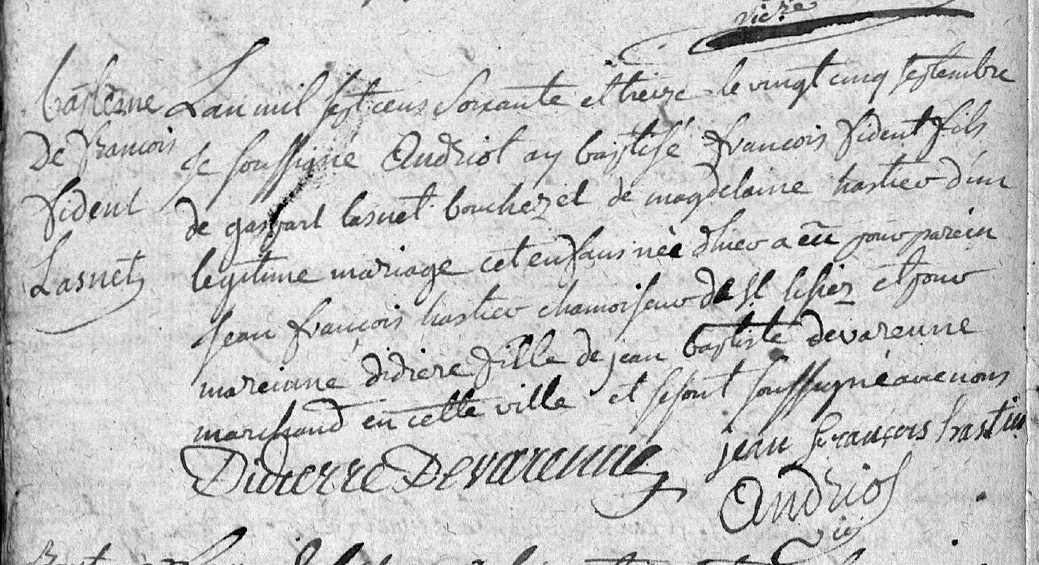 vicre
batesme
De francois
fident
Lasnet
Lan mil sept cens soixante et treize le vingt cinq septembre
Je soussigné Andriot ay baptisé francois fident fils
de gaspart lasnet boucher et de magdelaine hastier d'un
legitime mariage cet enfans née d'hier a eu pour parein
jean françois hastier chamoiseur de st et pour
mareinne didiere fille de jean baptiste devarenne
marchand en cette ville et se sont soussigné avec nous
Didierre Devarenne jean françois hastier
Andriot
vic